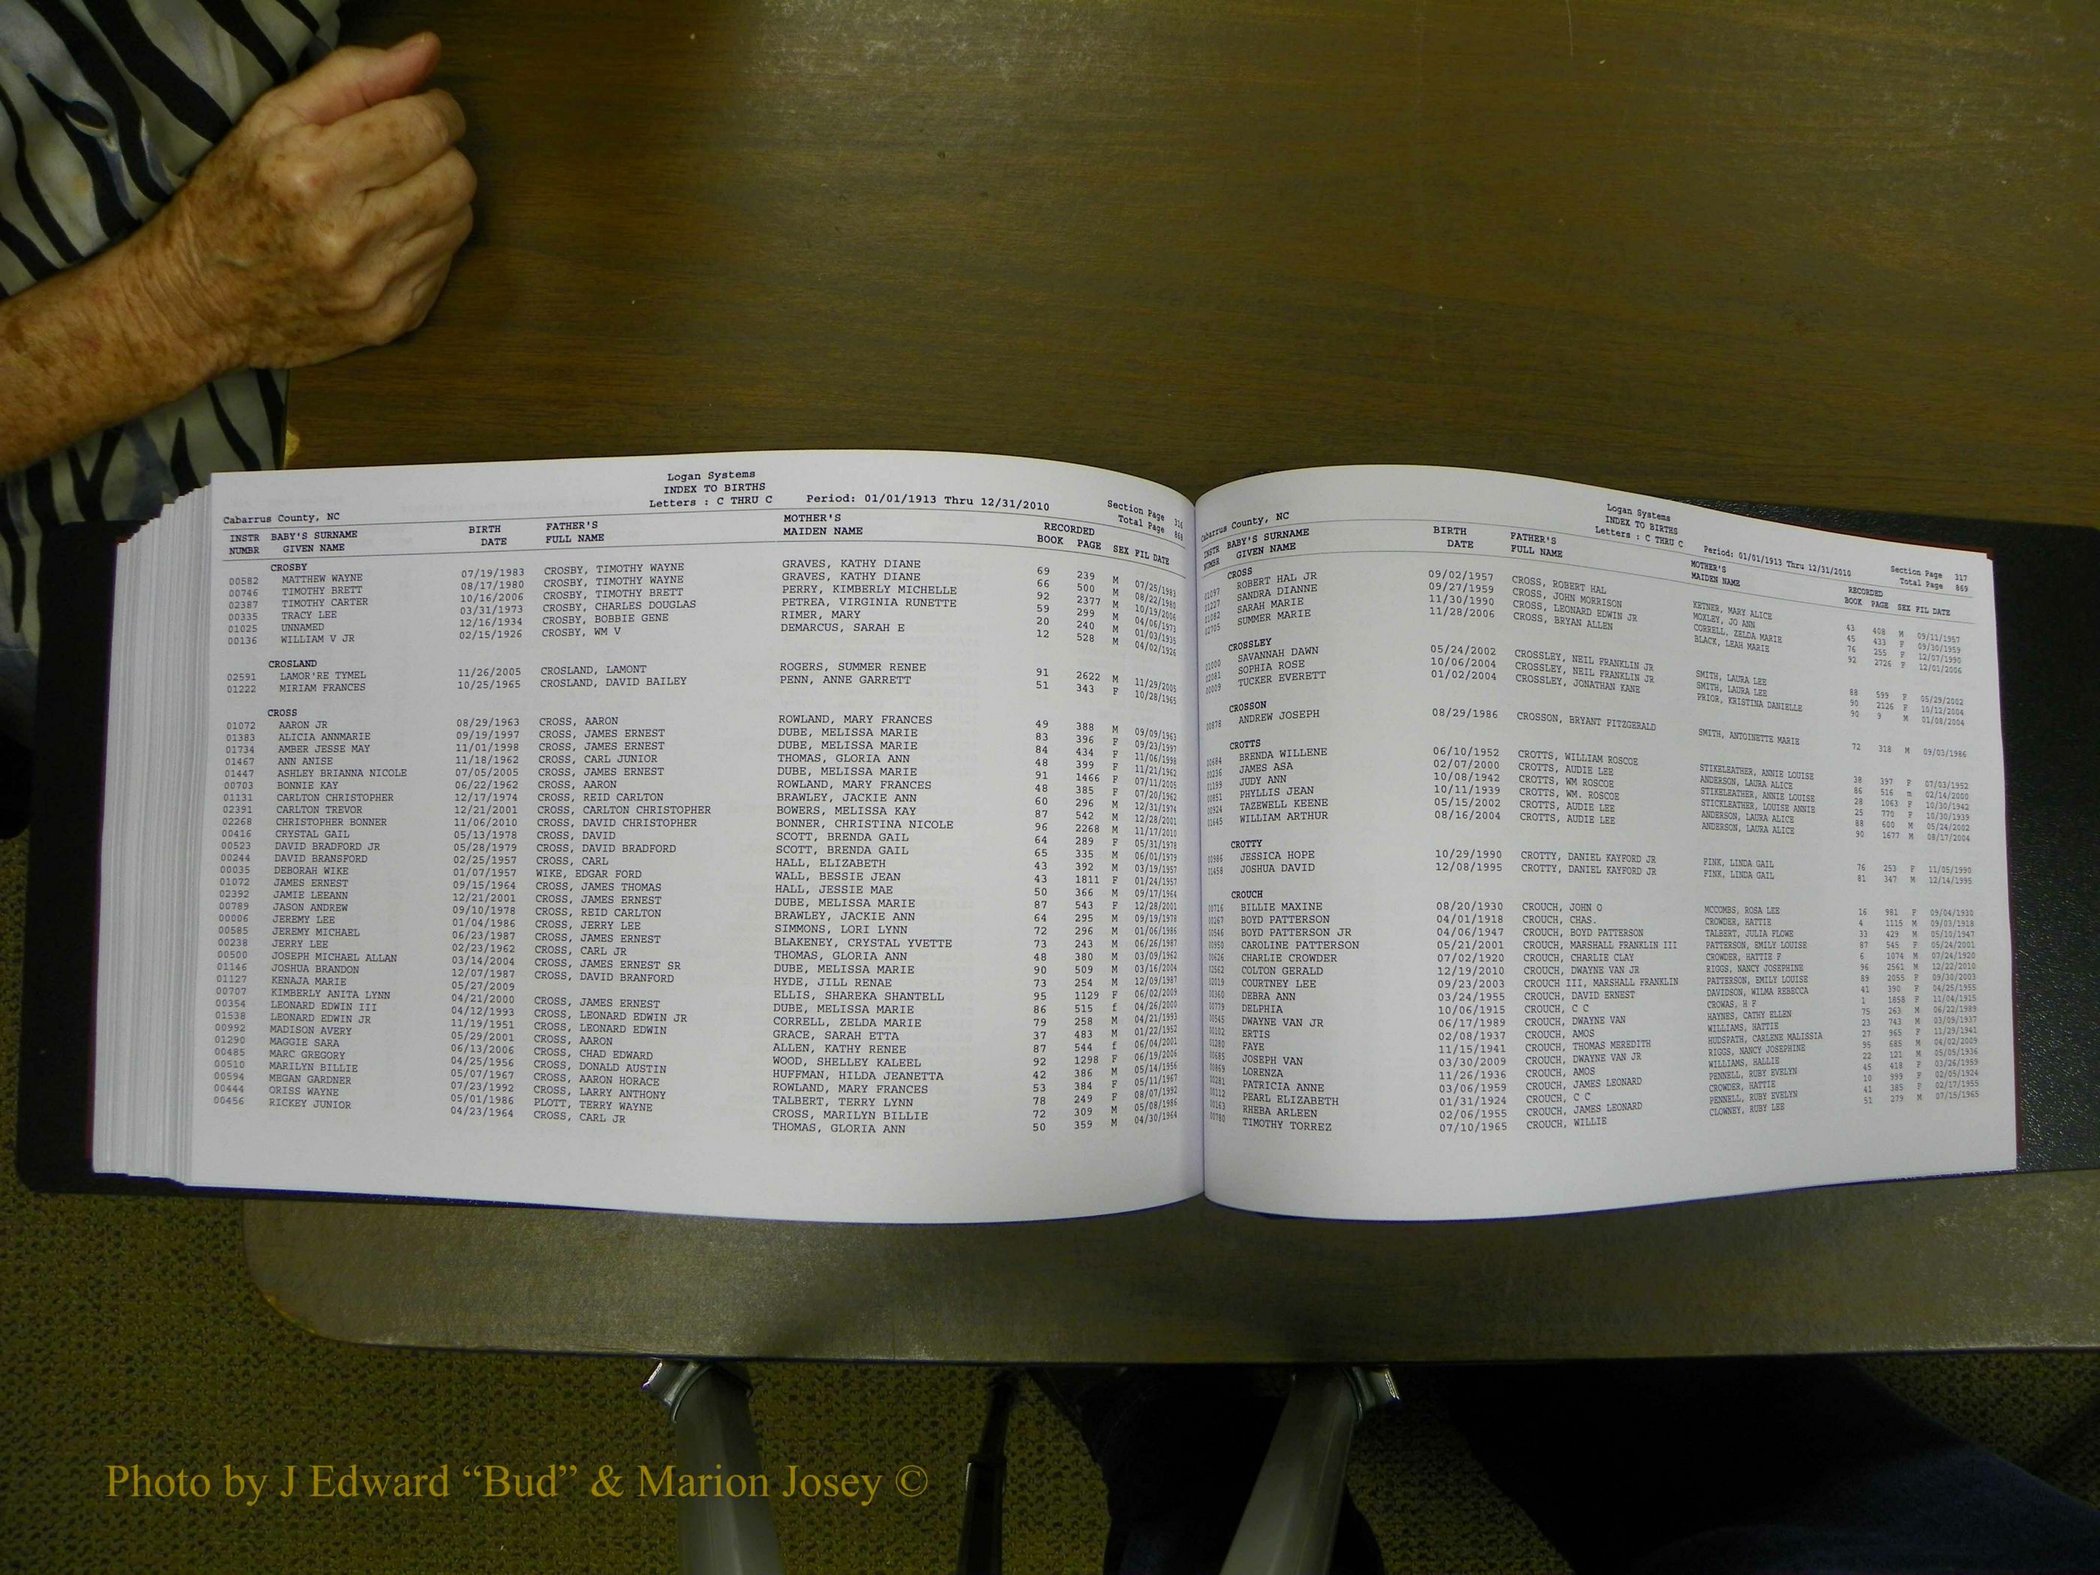 Logan Systems
INDEX TO BIRTHS
Cabarrus County, NC Letters : C THRU C Period: 01/01/1913 Thru 12/31/2010 Section Page 316
Total Page 868
INSTR BABY'S SURNAME BIRTH FATHER'S MOTHER'S RECORDED
NUMBR GIVEN NAME DATE FULL NAME MAIDEN NAME BOOK PAGE SEX FIL DATE
CROSBY
00582 MATTHEW WAYNE 07/19/1983 CROSBY, TIMOTHY WAYNE GRAVES, KATHY DIANE 69 239 M 07/25/1983
00746 TIMOTHY BRETT 08/17/1980 CROSBY, TIMOTHY WAYNE GRAVES, KATHY DIANE 66 500 M 08/22/1980
02387 TIMOTHY CARTER 10/16/2006 CROSBY, TIMOTHY BRETT PERRY, KIMBERLY MICHELLE 92 2377 M 10/19/2006
00335 TRACY LEE 03/31/1973 CROSBY, CHARLES DOUGLAS PETREA, VIRGINIA RUNETTE 59 299 M 04/06/1973
01025 UNNAMED 12/16/1934 CROSBY, BOBBIE GENE RIMER, MARY 20 240 M 01/03/1935
00136 WILLIAM V JR 02/15/1926 CROSBY, WM V DEMARCUS, SARAH E 12 528 M 04/02/1926
CROSLAND
02591 LAMOR'RE TYMEL 11/26/2005 CROSLAND, LAMONT ROGERS, SUMMER RENEE 91 2622 M 11/29/2005
01222 MIRIAM FRANCES 10/25/1965 CROSLAND, DAVID BAILEY PENN, ANNE GARRETT 51 343 F 10/28/1965
CROSS
01072 AARON JR 08/29/1963 CROSS, AARON ROWLAND, MARY FRANCES 49 388 M 09/09/1963
01383 ALICIA ANNMARIE 09/19/1997 CROSS, JAMES ERNEST DUBE, MELISSA MARIE 83 396 F 09/23/1997
01734 AMBER JESSE MAY 11/01/1998 CROSS, JAMES ERNEST DUBE, MELISSA MARIE 84 434 F 11/06/1998
01467 ANN ANISE 11/18/1962 CROSS, CARL JUNIOR THOMAS, GLORIA ANN 48 399 F 11/21/1962
01447 ASHLEY BRIANNA NICOLE 07/05/2005 CROSS, JAMES ERNEST DUBE, MELISSA MARIE 91 1466 F 07/11/2005
00703 BONNIE KAY 06/22/1962 CROSS, AARON ROWLAND, MARY FRANCES 48 385 F 07/20/1962
01131 CARLTON CHRISTOPHER 12/17/1974 CROSS, REID CARLTON BRAWLEY, JACKIE ANN 60 296 M 12/31/1974
02391 CARLTON TREVOR 12/21/2001 CROSS, CARLTON CHRISTOPHER BOWERS, MELISSA KAY 87 542 M 12/28/2001
02268 CHRISTOPHER BONNER 11/06/2010 CROSS, DAVID CHRISTOPHER BONNER, CHRISTINA NICOLE 96 2268 M 11/17/2010
00416 CRYSTAL GAIL 05/13/1978 CROSS, DAVID SCOTT, BRENDA GAIL 64 289 F 05/31/1978
00523 DAVID BRADFORD JR 05/28/1979 CROSS, DAVID BRADFORD SCOTT, BRENDA GAIL 65 335 M 06/01/1979
00244 DAVID BRANSFORD 02/25/1957 CROSS, CARL HALL, ELIZABETH 43 392 M 03/19/1957
00035 DEBORAH WIKE 01/07/1957 WIKE, EDGAR FORD WALL, BESSIE JEAN 43 1811 F 01/24/1957
01072 JAMES ERNEST 09/15/1964 CROSS, JAMES THOMAS HALL, JESSIE MAE 50 366 M 09/17/1964
02392 JAMIE LEEANN 12/21/2001 CROSS, JAMES ERNEST DUBE, MELISSA MARIE 87 543 F 12/28/2001
00789 JASON ANDREW 09/10/1978 CROSS, REID CARLTON BRAWLEY, JACKIE ANN 64 295 M 09/19/1978
00006 JEREMY LEE 01/04/1986 CROSS, JERRY LEE SIMMONS, LORI LYNN 72 296 M 01/06/1986
00585 JEREMY MICHAEL 06/23/1987 CROSS, JAMES ERNEST BLAKENEY, CRYSTAL YVETTE 73 243 M 06/26/1987
00238 JERRY LEE 02/23/1962 CROSS, CARL JR THOMAS, GLORIA ANN 48 380 M 03/09/1962
00500 JOSEPH MICHAEL ALLAN 03/14/2004 CROSS, JAMES ERNEST SR DUBE, MELISSA MARIE 90 509 M 03/16/2004
01146 JOSHUA BRANDON 12/07/1987 CROSS, DAVID BRANFORD HYDE, JILL RENAE 73 254 M 12/09/1987
01127 KENAJA MARIE 05/27/2009 ELLIS, SHAREKA SHANTELL 95 1129 F 06/02/2009
00707 KIMBERLY ANITA LYNN 04/21/2000 CROSS, JAMES ERNEST DUBE, MELISSA MARIE 86 515 f 04/26/2000
00354 LEONARD EDWIN III 04/12/1993 CROSS, LEONARD EDWIN JR CORRELL, ZELDA MARIE 79 258 M 04/21/1993
01538 LEONARD EDWIN JR 11/19/1951 CROSS, LEONARD EDWIN GRACE, SARAH ETTA 37 483 M 01/22/1952
00992 MADISON AVERY 05/29/2001 CROSS, AARON ALLEN, KATHY RENEE 87 544 f 06/04/2001
01290 MAGGIE SARA 06/13/2006 CROSS, CHAD EDWARD WOOD, SHELLEY KALEEL 92 1298 F 06/19/2006
00485 MARC GREGORY 04/25/1956 CROSS, DONALD AUSTIN HUFFMAN, HILDA JEANETTA 42 386 M 05/14/1956
00510 MARILYN BILLIE 05/07/1967 CROSS, AARON HORACE ROWLAND, MARY FRANCES 53 384 F 05/11/1967
00594 MEGAN GARDNER 07/23/1992 CROSS, LARRY ANTHONY TALBERT, TERRY LYNN 78 249 F 08/07/1992
00444 ORISS WAYNE 05/01/1986 PLOTT, TERRY WAYNE CROSS, MARILYN BILLIE 72 309 M 05/08/1986
00456 RICKEY JUNIOR 04/23/1964 CROSS, CARL JR THOMAS, GLORIA ANN 50 359 M 04/30/1964
Logan Systems
INDEX TO BIRTHS
Cabarrus County, NC Letters : C THRU C Period: 01/01/1913 Thru 12/31/2010 Section Page 317
Total Page 869
INSTR BABY'S SURNAME BIRTH FATHER'S MOTHER'S RECORDED
NUMBR GIVEN NAME DATE FULL NAME MAIDEN NAME BOOK PAGE SEX FIL DATE
CROSS
01097 ROBERT HAL JR 09/02/1957 CROSS, ROBERT HAL KETNER, MARY ALICE 43 408 M 09/11/1957
01227 SANDRA DIANNE 09/27/1959 CROSS, JOHN MORRISON MOXLEY, JO ANN 45 433 F 09/30/1959
01082 SARAH MARIE 11/30/1990 CROSS, LEONARD EDWIN JR CORRELL, ZELDA MARIE 76 255 F 12/07/1990
02705 SUMMER MARIE 11/28/2006 CROSS, BRYAN ALLEN BLACK, LEAH MARIE 92 2726 F 12/01/2006
CROSSLEY
01000 SAVANNAH DAWN 05/24/2002 CROSSLEY, NEIL FRANKLIN JR SMITH, LAURA LEE 88 599 F 05/29/2002
02081 SOPHIA ROSE 10/06/2004 CROSSLEY, NEIL FRANKLIN JR SMITH, LAURA LEE 90 2126 F 10/12/2004
00009 TUCKER EVERETT 01/02/2004 CROSSLEY, JONATHAN KANE PRIOR, KRISTINA DANIELLE 90 9 M 01/08/2004
CROSSON
00878 ANDREW JOSEPH 08/29/1986 CROSSON, BRYANT FITZGERALD SMITH, ANTOINETTE MARIE 72 318 M 09/03/1986
CROTTS
00684 BRENDA WILLENE 06/10/1952 CROTTS, WILLIAM ROSCOE STIKELEATHER, ANNIE LOUISE 38 397 F 07/03/1952
00236 JAMES ASA 02/07/2000 CROTTS, AUDIE LEE ANDERSON, LAURA ALICE 86 516 m 02/14/2000
01199 JUDY ANN 10/08/1942 CROTTS, WM ROSCOE STIKELEATHER, ANNIE LOUISE 28 1063 F 10/30/1942
00851 PHYLLIS JEAN 10/11/1939 CROTTS, WM. ROSCOE STICKLEATHER, LOUISE ANNIE 25 770 F 10/30/1939
00924 TAZEWELL KEENE 05/15/2002 CROTTS, AUDIE LEE ANDERSON, LAURA ALICE 88 600 M 05/24/2002
01645 WILLIAM ARTHUR 08/16/2004 CROTTS, AUDIE LEE ANDERSON, LAURA ALICE 90 1677 M 08/17/2004
CROTTY
00986 JESSICA HOPE 10/29/1990 CROTTY, DANIEL KAYFORD JR PINK, LINDA GAIL 76 253 F 11/05/1990
01458 JOSHUA DAVID 12/08/1995 CROTTY, DANIEL KAYFORD JR PINK, LINDA GAIL 81 347 M 12/14/1995
CROUCH
00716 BILLIE MAXINE 08/20/1930 CROUCH, JOHN O MCCOMBS, ROSA LEE 16 981 F 09/04/1930
00267 BOYD PATTERSON 04/01/1918 CROUCH, CHAS. CROWDER, HATTIE 4 1115 M 09/03/1918
00546 BOYD PATTERSON JR 04/06/1947 CROUCH, BOYD PATTERSON TALBERT, JULIA FLOWE 33 429 M 05/10/1947
00950 CAROLINE PATTERSON 05/21/2001 CROUCH, MARSHALL FRANKLIN III PATTERSON, EMILY LOUISE 87 545 F 05/24/2001
00626 CHARLIE CROWDER 07/02/1920 CROUCH, CHARLIE CLAY CROWDER, HATTIE F 6 1074 M 07/24/1920
02562 COLTON GERALD 12/19/2010 CROUCH, DWAYNE VAN JR RIGGS, NANCY JOSEPHINE 96 2561 M 12/22/2010
02019 COURTNEY LEE 09/23/2003 CROUCH III, MARSHALL FRANKLIN PATTERSON, EMILY LOUISE 89 2055 F 09/30/2003
00360 DEBRA ANN 03/24/1955 CROUCH, DAVID ERNEST DAVIDSON, WILMA REBECCA 41 390 F 04/25/1955
00779 DELPHIA 10/06/1915 CROUCH, C C CROWAS, H F 1 1858 F 11/04/1915
00545 DWAYNE VAN JR 06/17/1989 CROUCH, DWAYNE VAN HAYNES, CATHY ELLEN 75 263 M 06/22/1989
00102 ERTIS 02/08/1937 CROUCH, AMOS WILLIAMS, HATTIE 23 743 M 03/09/1937
01280 FAYE 11/15/1941 CROUCH, THOMAS MEREDITH HUDSPATH, CARLENE MALISSIA 27 965 F 11/29/1941
00685 JOSEPH VAN 03/30/2009 CROUCH, DWAYNE VAN JR RIGGS, NANCY JOSEPHINE 95 685 M 04/02/2009
00869 LORENZA 11/26/1936 CROUCH, AMOS WILLIAMS, HALLIE 22 121 M 05/05/1936
00281 PATRICIA ANNE 03/06/1959 CROUCH, JAMES LEONARD PENNELL, RUBY EVELYN 45 418 F 03/26/1959
00112 PEARL ELIZABETH 01/31/1924 CROUCH, C C CROWDER, HATTIE 10 999 F 02/05/1924
00163 RHEBA ARLEEN 02/06/1955 CROUCH, JAMES LEONARD PENNELL, RUBY EVELYN 41 385 F 02/17/1955
00780 TIMOTHY TORREZ 07/10/1965 CROUCH, WILLIE CLOWNEY, RUBY LEE 51 279 M 07/15/1965
Photo by J Edward “Bud” & Marion Josey ©